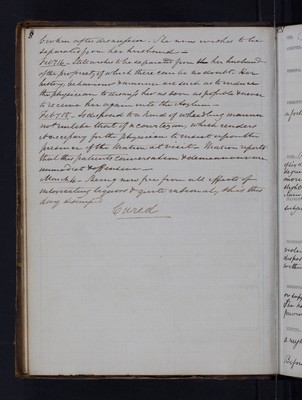 8
broken after discussion. She now wishes to be
separated from her husband —
Feby 14 — Still wishes to be separated from her husband
of the propriety of which there can be no doubt. Her
history, behaviour & manner are such as to induce
the physician to discharge her as soon as possible & never
to receive her again into the Asylum —
Feby 18. — is disposed to a kind of wheedling manner
not unlike that of a courtezan, which renders
it necessary for the physician to insist upon the
presence of the Matron at visits. Matron reports
that this patient's conversation & demeanour are
immodest & offensive —
March 4 — Being now free from all effects of
intoxicating liquors & quite rational, she is this
day discharged
Cured